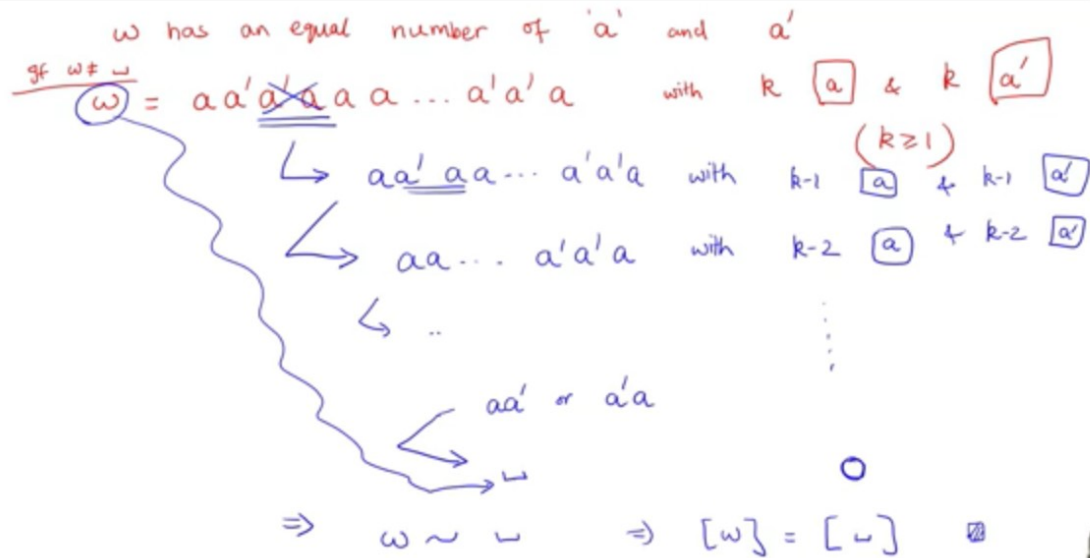 w has an equal number of 'a' and a'
If w ≠ ␣
w = aa'a'aaa... a'a'a with k a & k a'
(k ≥ 1)
aa'aa... a'a'a with k-1 a & k-1 a'
aa... a'a'a with k-2 a & k-2 a'
..
aa' or a'a
␣ 0
⇒ w ~ ␣ ⇒ [w] = [␣]